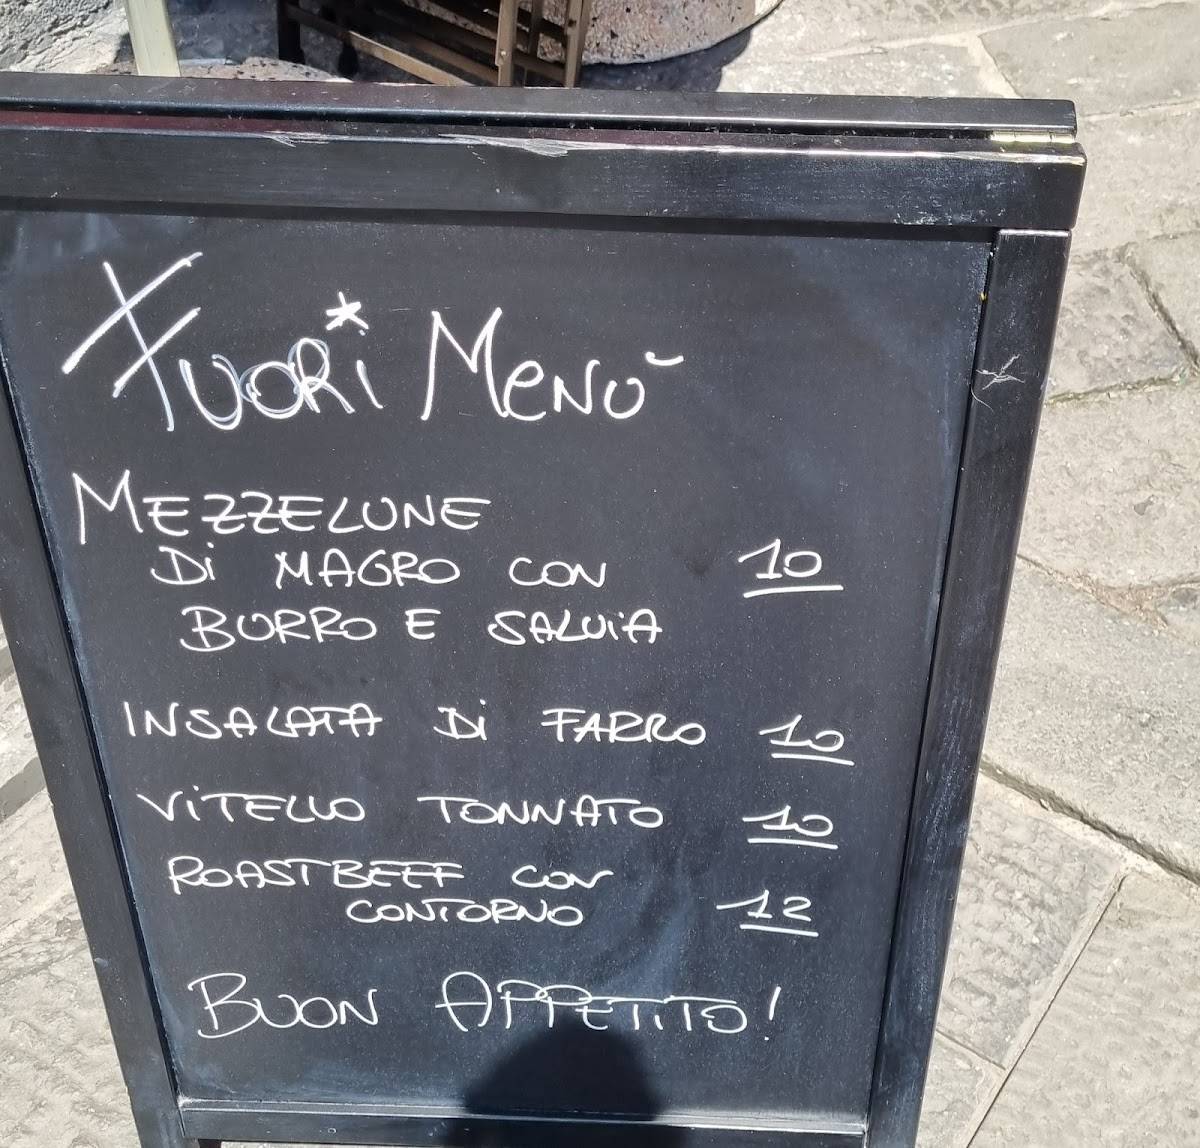 Fuori Menù
MEZZELUNE
Di MAGRO CON 10
BURRO E SALVIA
INSALATA Di FARRO 10
ViTELLO TONNATO 10
ROASTBEEF CON
CONTORNO 12
BUON APPETITO!